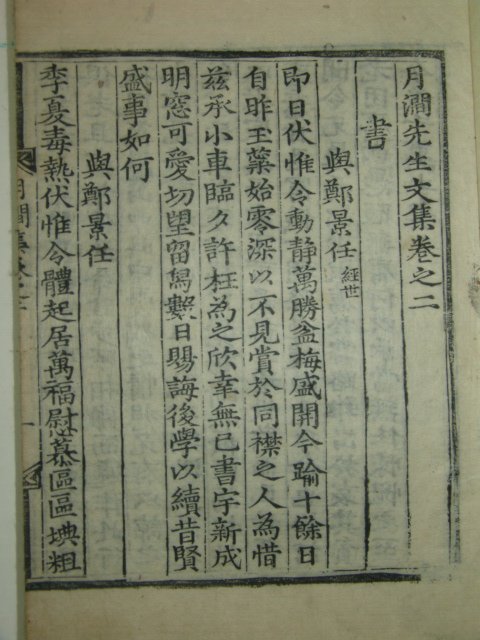 月澗先生文集卷之二
書
與鄭景任 經世
即日伏惟令動靜萬勝盆梅盛開今踰十餘日
自昨玉蘂始零深以不見賞於同襟之人為惜
茲承小車臨夂許枉為之欣幸無已書字新成
明窓可愛切望留舄數日賜誨後學以續昔賢
盛事如何
與鄭景任
季夏毒熱伏惟令體起居萬福慰慕區區㙉粗
月澗集卷之二